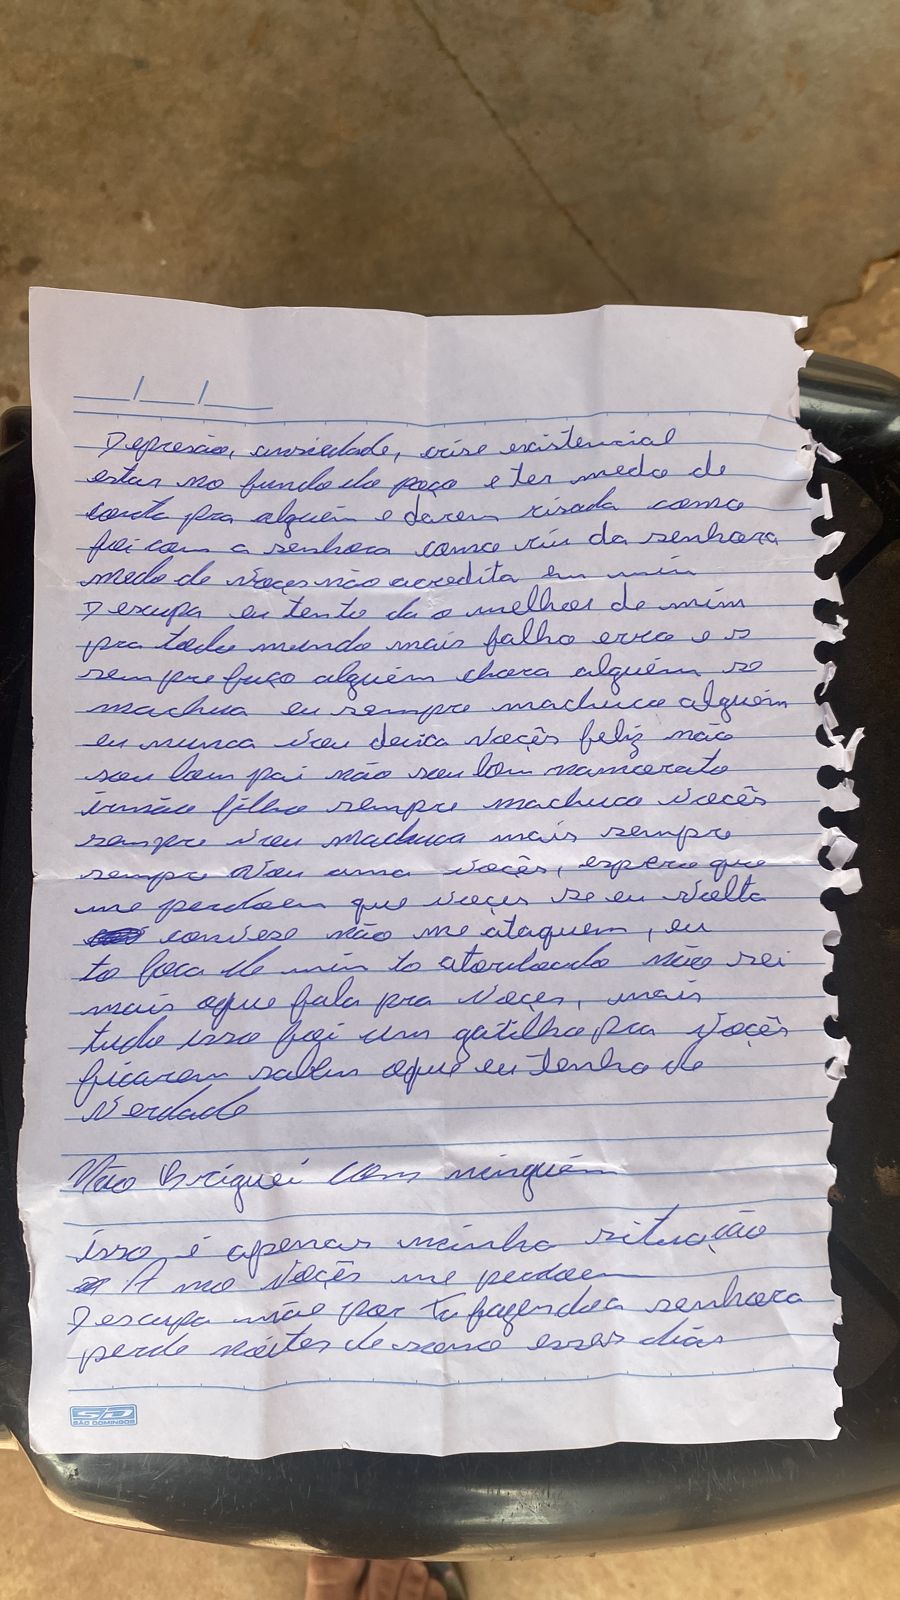 Depresão, ansiedade, crise existencial
estar no fundo do poço e ter medo de
conta pra alguém e darem risada como
foi com a senhora como riu da senhora
medo de voçes não acredita em mim
Descupa eu tento da o melhor de mim
pra todo mundo mais falho erro e s
sempre faço alguém chora alguém se
machuca eu sempre machuco alguém
eu nunca vou deixa voçês feliz não
sou bom pai não sou bom namorato
irmão filho sempre machuco vocês
sempre vou machuca mais sempre
sempre vou ama vocês, espero que
me perdoem que voçes se eu volta
converse não me ataquem, eu
to fora de mim to atordoado não sei
mais oque fala pra voces, mais
tudo isso foi um gatilho pra voçês
ficarem saben oque eu tenho de
verdade
Não briguei com ninguém
isso é apenas minha situação
Amo voçês me perdoem
Descupa mãe por ta fazendo a senhora
perde noites de sono esses dias
SD
SÃO DOMINGOS